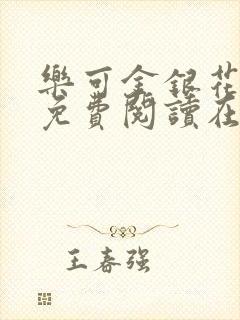 樂可金銀花
免費閱讀在
王春强